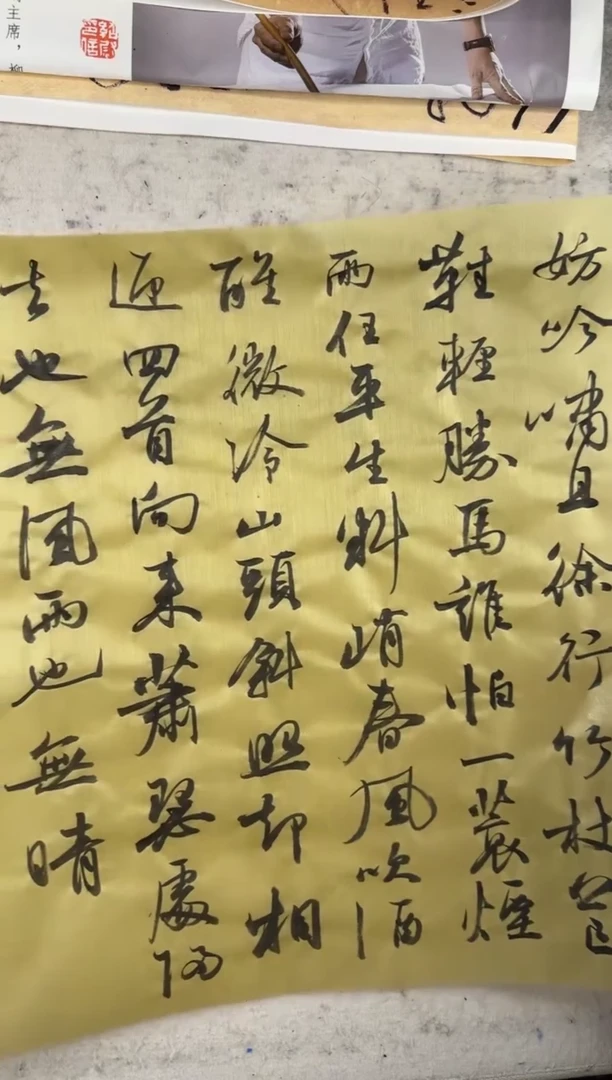 主席，柳
妨吟嘯且徐行竹杖芒
鞋輕勝馬誰怕一蓑煙
雨任平生料峭春風吹酒
醒微冷山頭斜照却相
迎回首向来蕭瑟處歸
去也無風雨也無晴